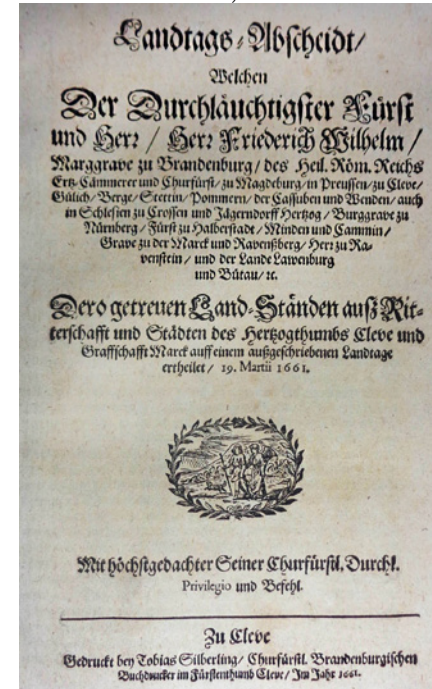 Landtags-Abscheidt/
Welchen
Der Durchläuchtigster Fürst
und Herr / Herr Friederich Wilhelm /
Marggrave zu Brandenburg / des Heil. Röm. Reichs
Ertz-Cämmerer und Churfürst / zu Magdeburg / in Preussen / zu Cleve /
Gülich / Berge / Stettin / Pommern / der Cassuben und Wenden / auch
in Schlesien zu Crossen und Jägerndorff Hertzog / Burggrave zu
Nürnberg / Fürst zu Halberstadt / Minden und Cammin /
Grave zu der Marck und Ravenßberg / Herr zu Ra-
venstein / und der Lande Lawenburg
und Bütau / ꝛc.
Dero getreuen Land-Ständen auß Rit-
terschafft und Städten des Hertzogthumbs Cleve und
Graffschafft Marck auff einem außgeschriebenen Landtage
ertheilet / 19. Martii 1661.
Mit höchstgedachter Seiner Churfürstl. Durchl.
Privilegio und Befehl.
Zu Cleve
Gedruckt bey Tobias Silberling / Churfürstl. Brandenburgischen
Buchdrucker im Fürstenthumb Cleve / Im Jahr 1661.